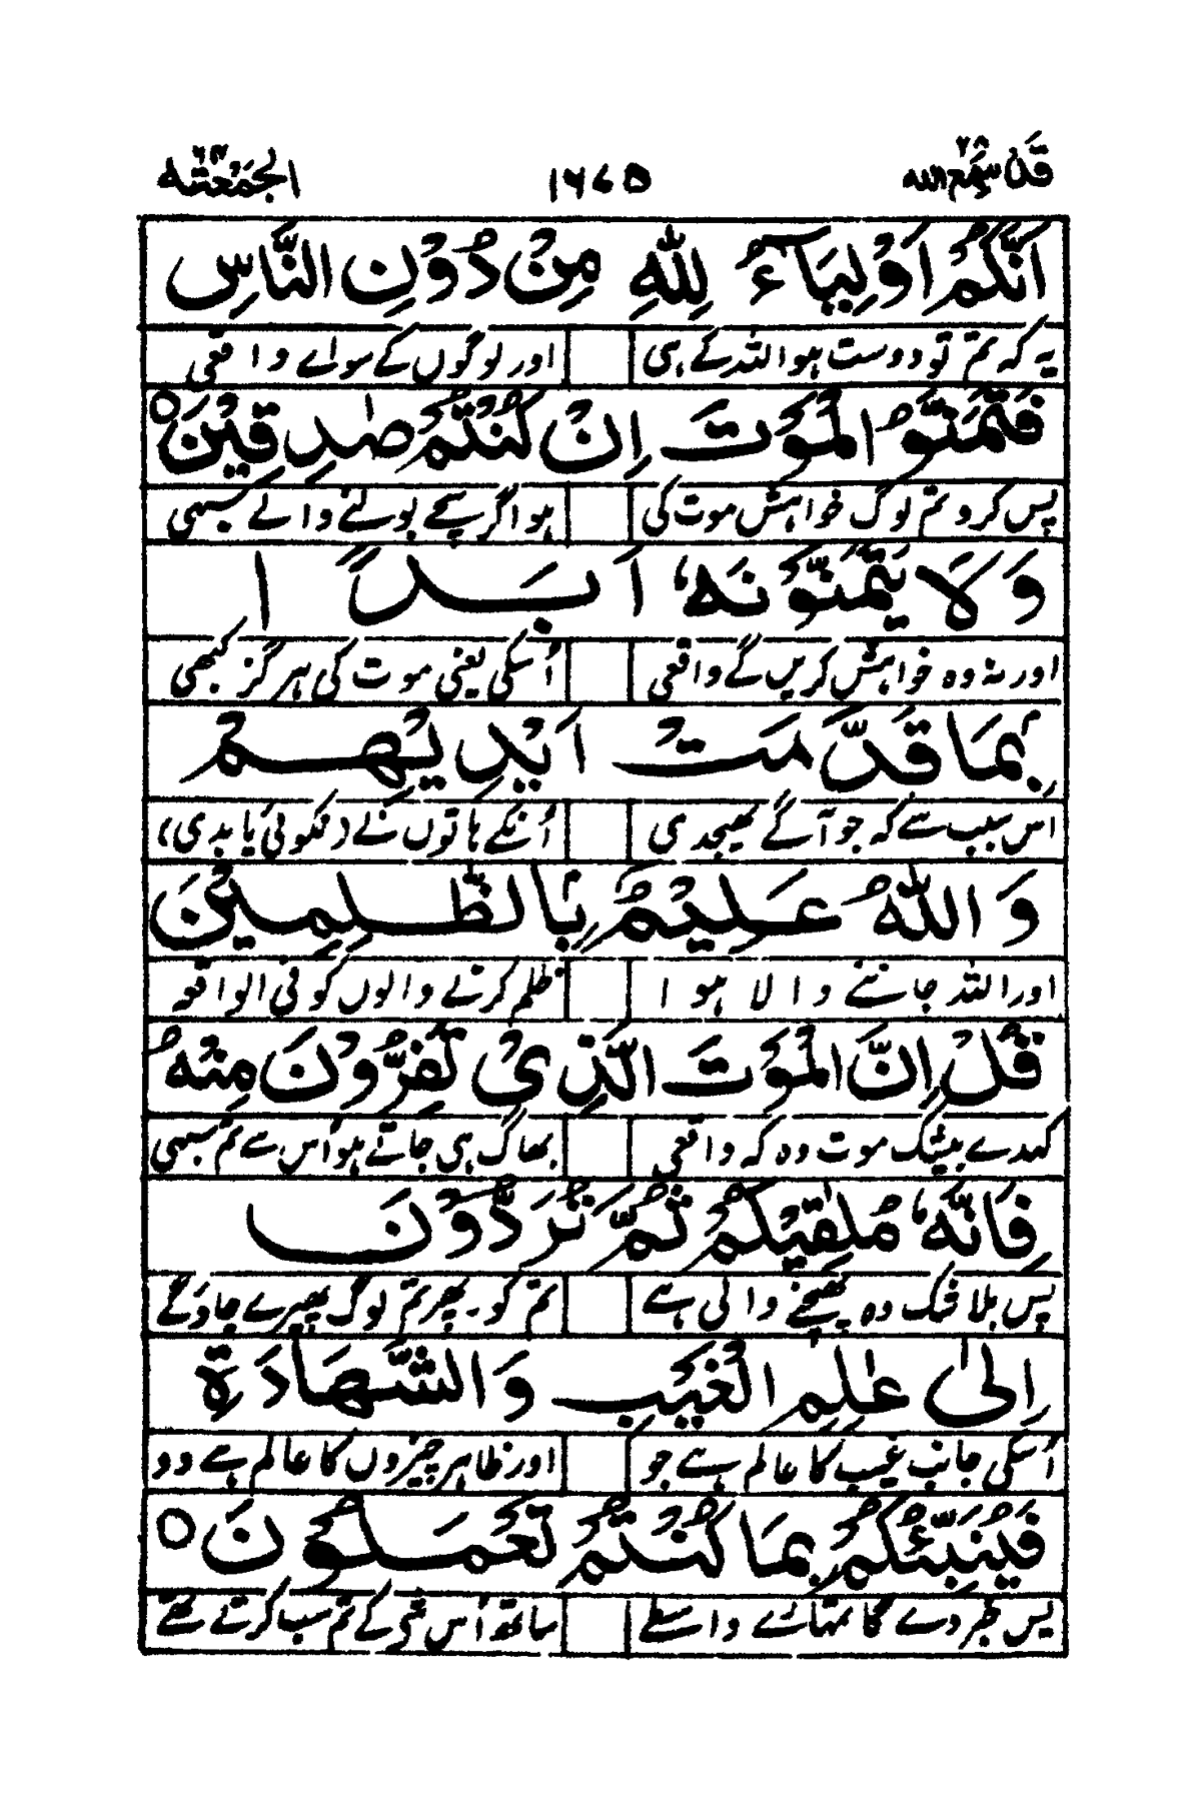 قد سمع الله ۲۸ ۱۶۷۵ الجمعتہ ۶۲
اَنَّكُمْ اَوْلِيَآءُ لِلّٰهِ مِنْ دُوْنِ النَّاسِ
یہ کہ تم تو دوست ہو اللہ کے ہی اور لوگوں کے سوائے واقعی
فَتَمَنَّوُا الْمَوْتَ اِنْ كُنْتُمْ صٰدِقِيْنَ ○
پس کرو تم لوگ خواہش موت کی ہو اگر سچے بولنے والے سبہی
وَلَا يَتَمَنَّوْنَهٗ اَبَدًا
اور نہ وہ خواہش کریں گے واقعی اُسکی یعنی موت کی ہرگز کبھی
بِمَا قَدَّمَتْ اَيْدِيْهِمْ
اس سبب سے کہ جو آگے بھیجدی اُنکے ہاتوں نے (نکوئی یا بدی)
وَاللّٰهُ عَلِيْمٌ بِالظّٰلِمِيْنَ
اور اللہ جاننے والا ہوا ظلم کرنے والوں کو فی الواقعہ
قُلْ اِنَّ الْمَوْتَ الَّذِيْ تَفِرُّوْنَ مِنْهُ
کہدے بیشک موت وہ کہ واقعی بھاگ ہی جاتے ہو اُس سے تم سبہی
فَاِنَّهٗ مُلٰقِيْكُمْ ثُمَّ تُرَدُّوْنَ
پس بلا شک وہ پہنچنے والی ہے تم کو۔ پھر تم لوگ پھیرے جاؤگے
اِلٰى عٰلِمِ الْغَيْبِ وَالشَّهَادَةِ
اُسکی جانب غیب کا عالم ہے جو اور ظاہر چیزوں کا عالم ہے وو
فَيُنَبِّئُكُمْ بِمَا كُنْتُمْ تَعْمَلُوْنَ ○
پس خبر دے گا تمہارے واسطے ساتھ اُس شی کے تم سب کرتے تھے